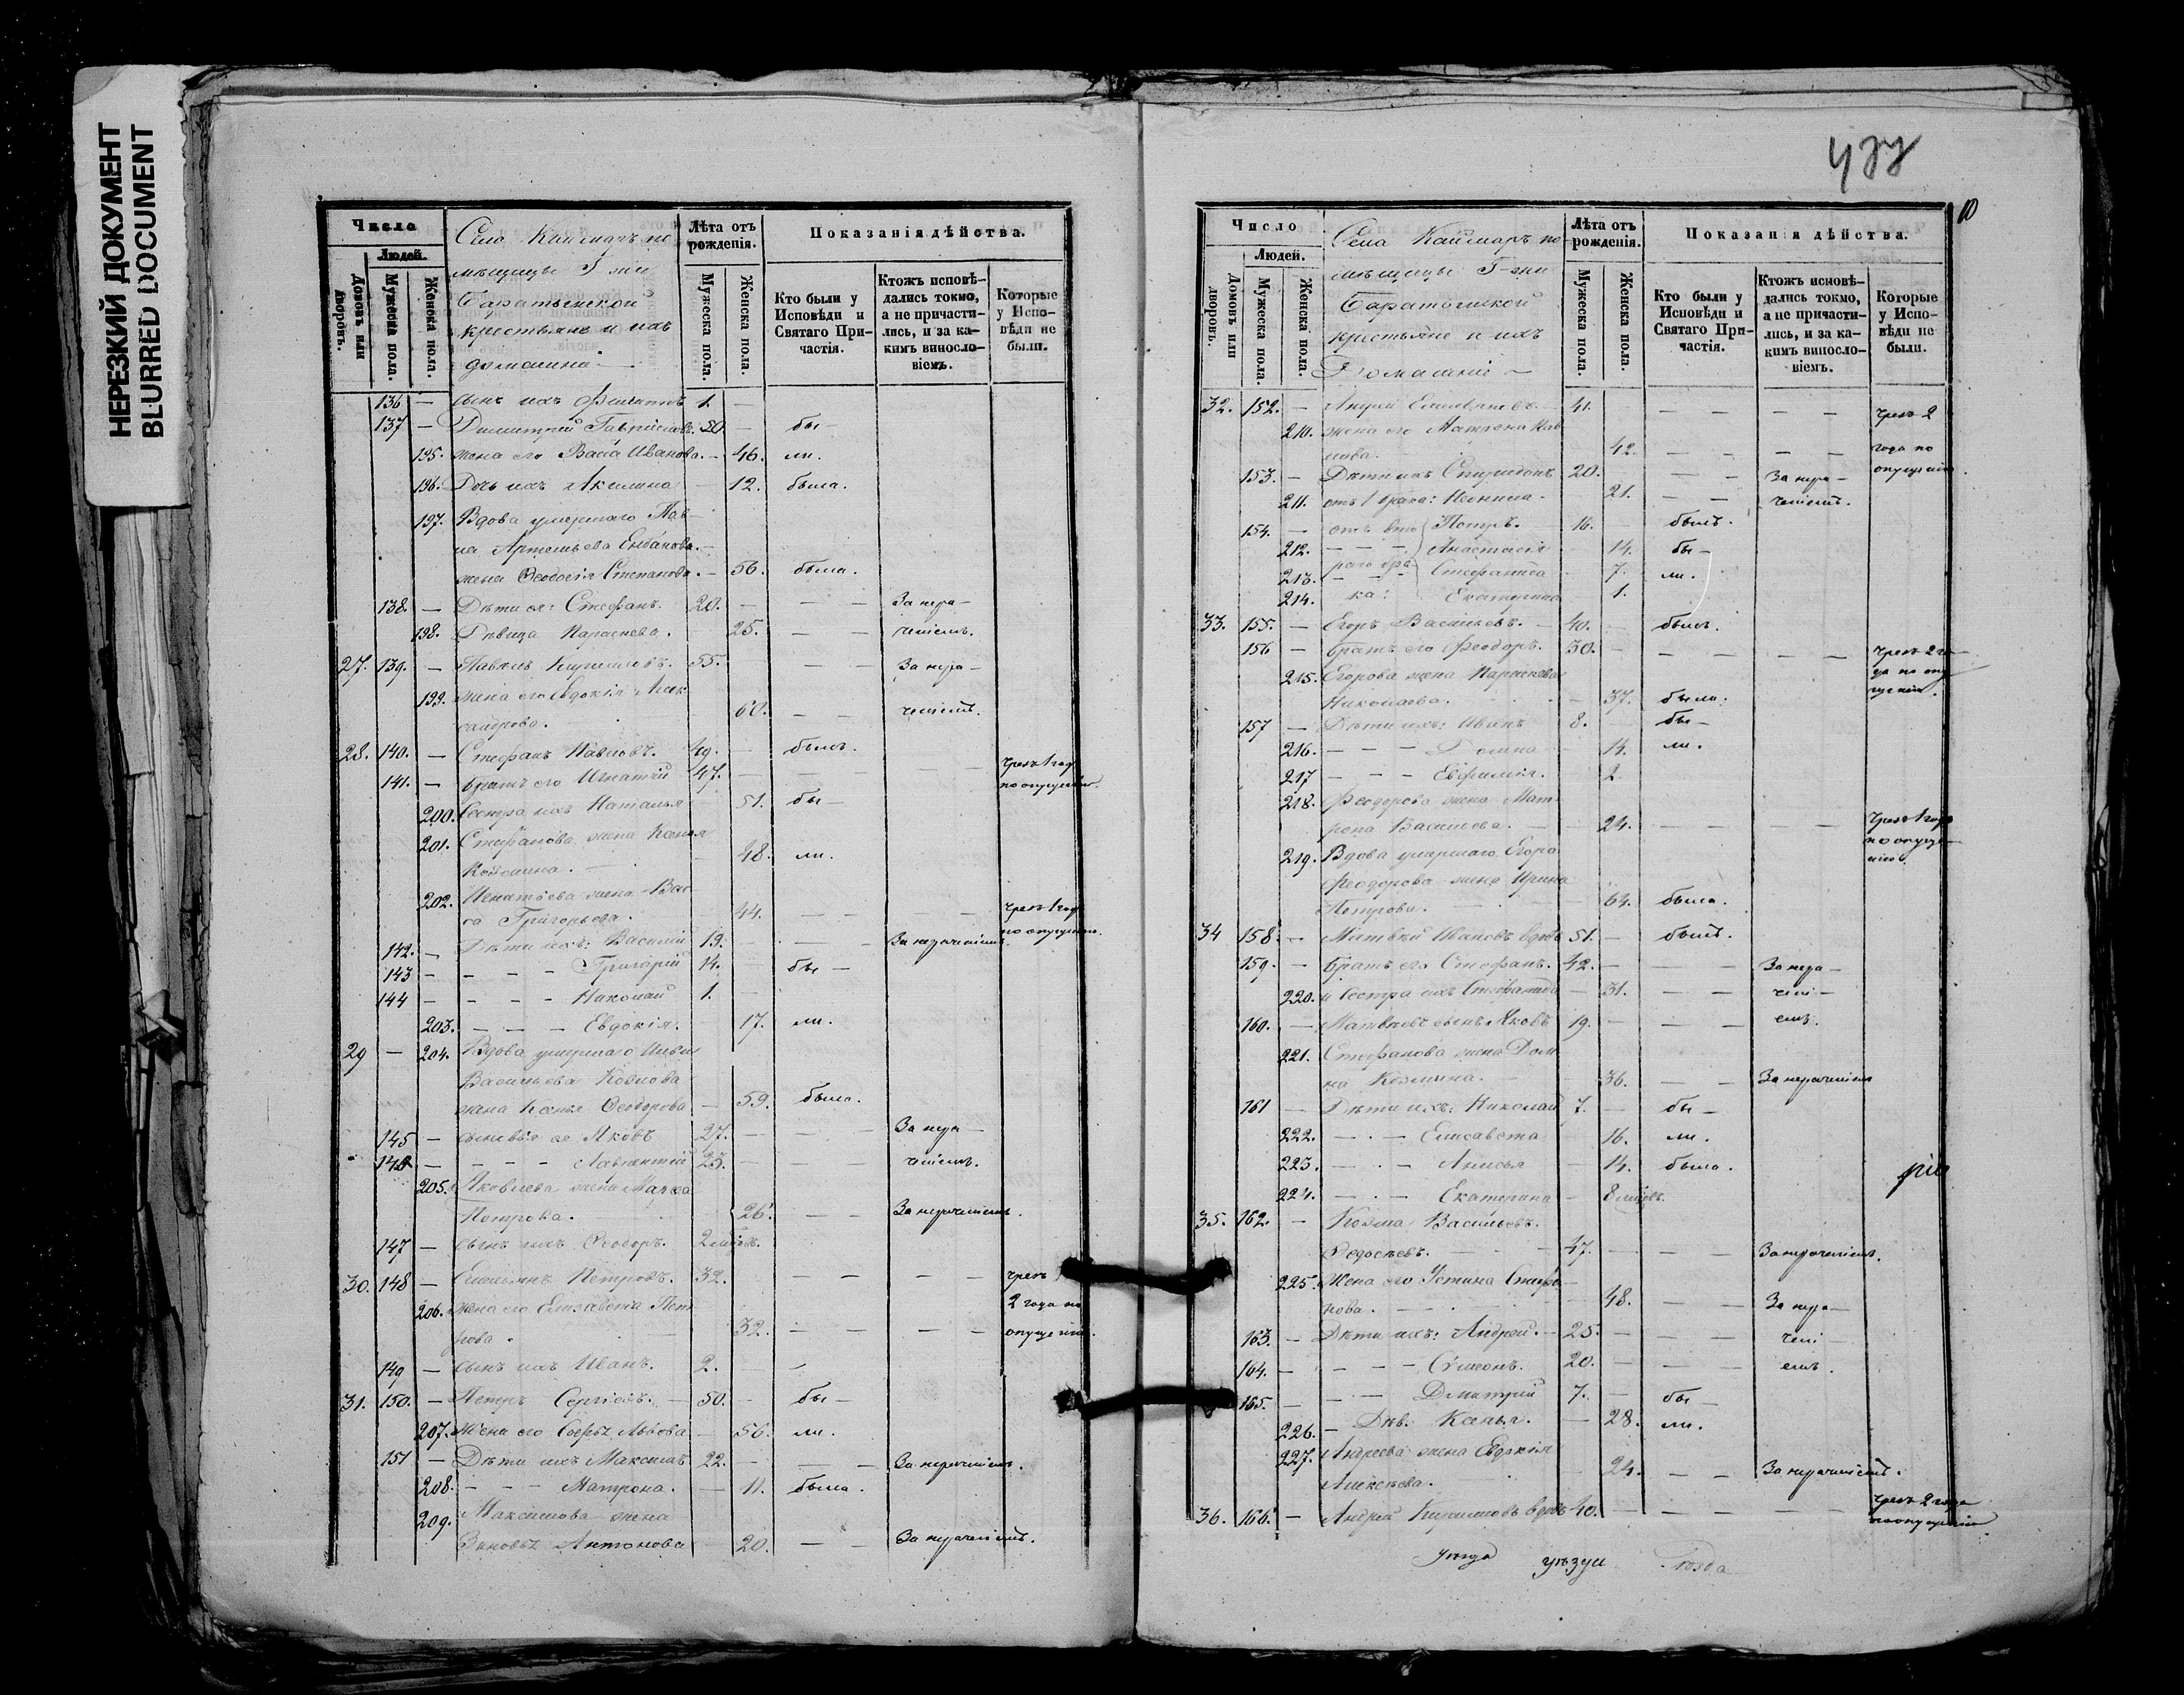 НЕРЕЗКИЙ ДОКУМЕНТ
BLURRED DOCUMENT
Числа
Людей.
Домовъ или дворовъ.
Мужеска пола.
Женска пола.
Села Каймаръ по
мѣщицы Г жи
Баратынской
крестьяне и ихъ
домашніи
Лѣта отъ рожденія.
Мужеска пола.
Женска пола.
Показанія дѣйства.
Кто были у Исповѣди и Святаго Причастія.
Ктожъ исповѣдались токмо, а не причастились, и за какимъ винословіемъ.
Которые у Исповѣди не были.
136 — сынъ ихъ Филиппъ 1. —
137 — Димитрій Гавриловъ. 50. — бы —
195. жена его Васса Иванова. — 46. ли.
196. Дочь ихъ Акилина — 12. была.
197. Вдова умершаго Пав
ла Артемьева
жена Ѳеодосія Степанова. — 56. была.
138. — Дѣти ея: Стефанъ. 20. — — — За нера —
198. Дѣвица Параскева. — 25. — — ченіемъ.
27. 139. — Павелъ Кириловъ. 55. — — За нера —
199. жена его Евдокія Алек
сандрова. — 60. — — ченіемъ.
28. 140. — Стефанъ Павловъ. 49. — былъ.
141. — братъ его Игнатій 47. — — — — чрезъ 1 год
по опущенію.
200. Сестра ихъ Наталья 51. бы —
201. Стефанова жена Ксенья
Козмина. — 48. ли.
202. Игнатьева жена Вас
са Григорьева. 44. — — — чрезъ 1 год
по опущенію.
142. — Дѣти ихъ: Василій 19. — — — За нераченіемъ.
143 — — — — Григорій 14. — бы —
144 — — — — Николай 1. —
203. — — — Евдокія. 17. ли.
29 — 204. Вдова умершаго Ильи
Васильева Козлова
жена Ксенья Ѳеодорова — 59. была.
145 — сыновья ея Яковъ 27. — — — За нера —
146 — — — — Лаврентій 23. — — — ченіемъ.
205. Яковлева жена Марѳа
Петрова. 26. — — За нераченіемъ.
147 — сынъ ихъ Ѳеодоръ. 2 мѣсяц.
30. 148 — Емельянъ Петровъ. 32. — — — — чрезъ
206. жена его Елизавета Пет
рова. 32. — — — — 2 года по
опущенію.
149 — сынъ ихъ Иванъ. 2. —
31. 150. — Петръ Сергѣевъ. — 50. — бы —
207. Жена его Софья Львова — 56. ли.
151 — Дѣти ихъ Максимъ 22. — — — За нераченіемъ.
208. — — — Матрона. — 11. была.
209. Максимова жена
Зиновья Антонова 20. — — За нераченіемъ.
477
10
Число
Людей.
Домовъ или дворовъ.
Мужеска пола.
Женска пола.
Села Каймаръ по
мѣщицы Г-жи
Баратынской
крестьяне и ихъ
Домашніи
Лѣта отъ рожденія.
Мужеска пола.
Женска пола.
Показанія дѣйства.
Кто были у Исповѣди и Святаго Причастія.
Ктожъ исповѣдались токмо, а не причастились, и за какимъ винословіемъ.
Которые у Исповѣди не были.
32. 152. — Емельяновъ. — 41. — — — — чрезъ 2
210. жена его Матрена Пав
лова. — 42. — — — — года по
опущенію.
153. — Дѣти ихъ Спиридонъ 20. — — За нера —
211. отъ 1 брака: 21. — — ченіемъ.
154. — отъ вто Петръ. — 16. — былъ.
212. — — — Анастасія 14. бы —
213. раго бра Стефанида 7. ли.
214. ка: Екатерина 1.
33. 155. — Егоръ Васильевъ. — 40. — былъ.
156 — братъ его Ѳеодоръ. 30. — — — — — чрезъ 2 го
да по опу
щенію.
215. Егорова жена Параскева
Николаева. 37. была.
157 — Дѣти ихъ: Иванъ 8. — бы —
216. — — — Домна — 14. ли.
217 — — — Евфимія. 2.
218. Ѳеодорова жена Мат
рена Васильева. — 24. — — — — чрезъ 1 годъ
по опуще
нію.
219. Вдова умершаго Егора
Ѳеодорова жена Ирина
Петрова. 64. была.
34 158 — Матвѣй Ивановъ вдовъ 51. — былъ.
159. — братъ его Стефанъ. 42. — — — За нера —
220. и Сестра ихъ Стефанида — 31. — — чені —
160. — Матвѣевъ сынъ Яковъ 19. — — — емъ.
221. Стефанова жена Дом
на Козмина. — 36. — — За нераченіемъ
161 — Дѣти ихъ: Николай 7. — бы —
222. — — Елисавета — 16. ли.
223. — — Анисья — 14. была.
224. — — Екатерина — 8 мѣсяц.
35. 162. — Козма Васильевъ
Ѳедосѣевъ. — — 47. — — — За нераченіемъ.
225. Жена его Устина Стефа
нова. — — 48. — — За нера —
163. — Дѣти ихъ: Андрей. — 25. — — — чені —
164. — — — — Сѵмеонъ. 20. — — — емъ.
165. — — — Дмитрій 7. — бы —
226. — Дѣв. Ксенья. — 28. ли.
227. Андреева жена Евдокія
Алексѣева. 24. — — За нераченіемъ.
36. 166. — Андрей Кириловъ вдовъ 40. — — — — — чрезъ 2 года
по опущенію
уѣзда